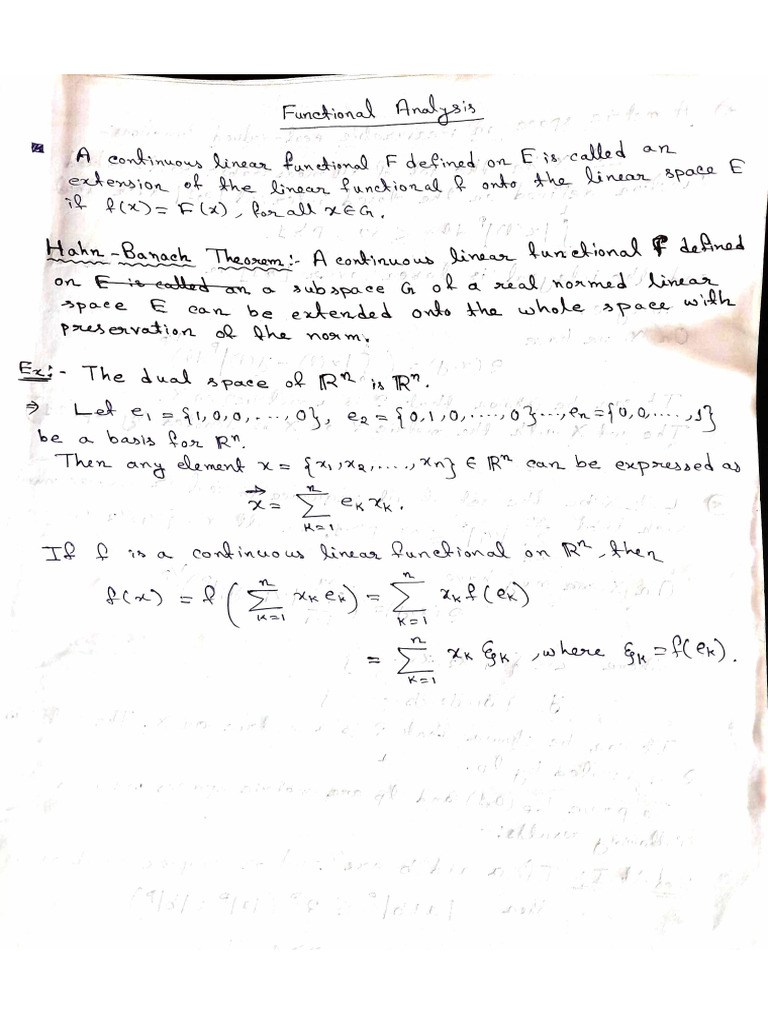 Functional Analysis
A continuous linear functional F defined on E is called an
extension of the linear functional f onto the linear space E
if f(x) = F(x), for all x ∈ G.
Hahn-Banach Theorem:- A continuous linear functional f defined
on E is called an a subspace G of a real normed linear
space E can be extended onto the whole space with
preservation of the norm.
Ex:- The dual space of ℝⁿ is ℝⁿ.
⇒ Let e₁ = {1,0,0,...,0}, e₂ = {0,1,0,.....,0}...,eₙ = {0,0,....,1}
be a basis for ℝⁿ.
Then any element x = {x₁,x₂,....,xₙ} ∈ ℝⁿ can be expressed as
x⃗ = ∑ₖ₌₁ⁿ eₖ xₖ.
If f is a continuous linear functional on ℝⁿ, then
f(x) = f(∑ₖ₌₁ⁿ xₖ eₖ) = ∑ₖ₌₁ⁿ xₖ f(eₖ)
= ∑ₖ₌₁ⁿ xₖ ξₖ, where ξₖ = f(eₖ).